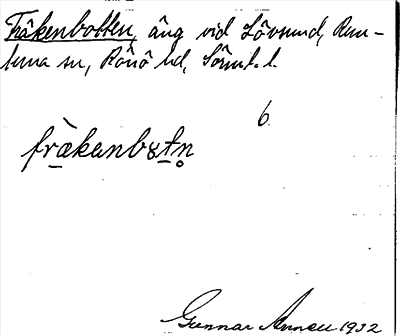 Fräkenbotten, äng vid Lövsund, Run-
tuna sn, Rönö hd, Sörml. l.
6
fràkanbɤtn̥
Gunnar Annell 1932